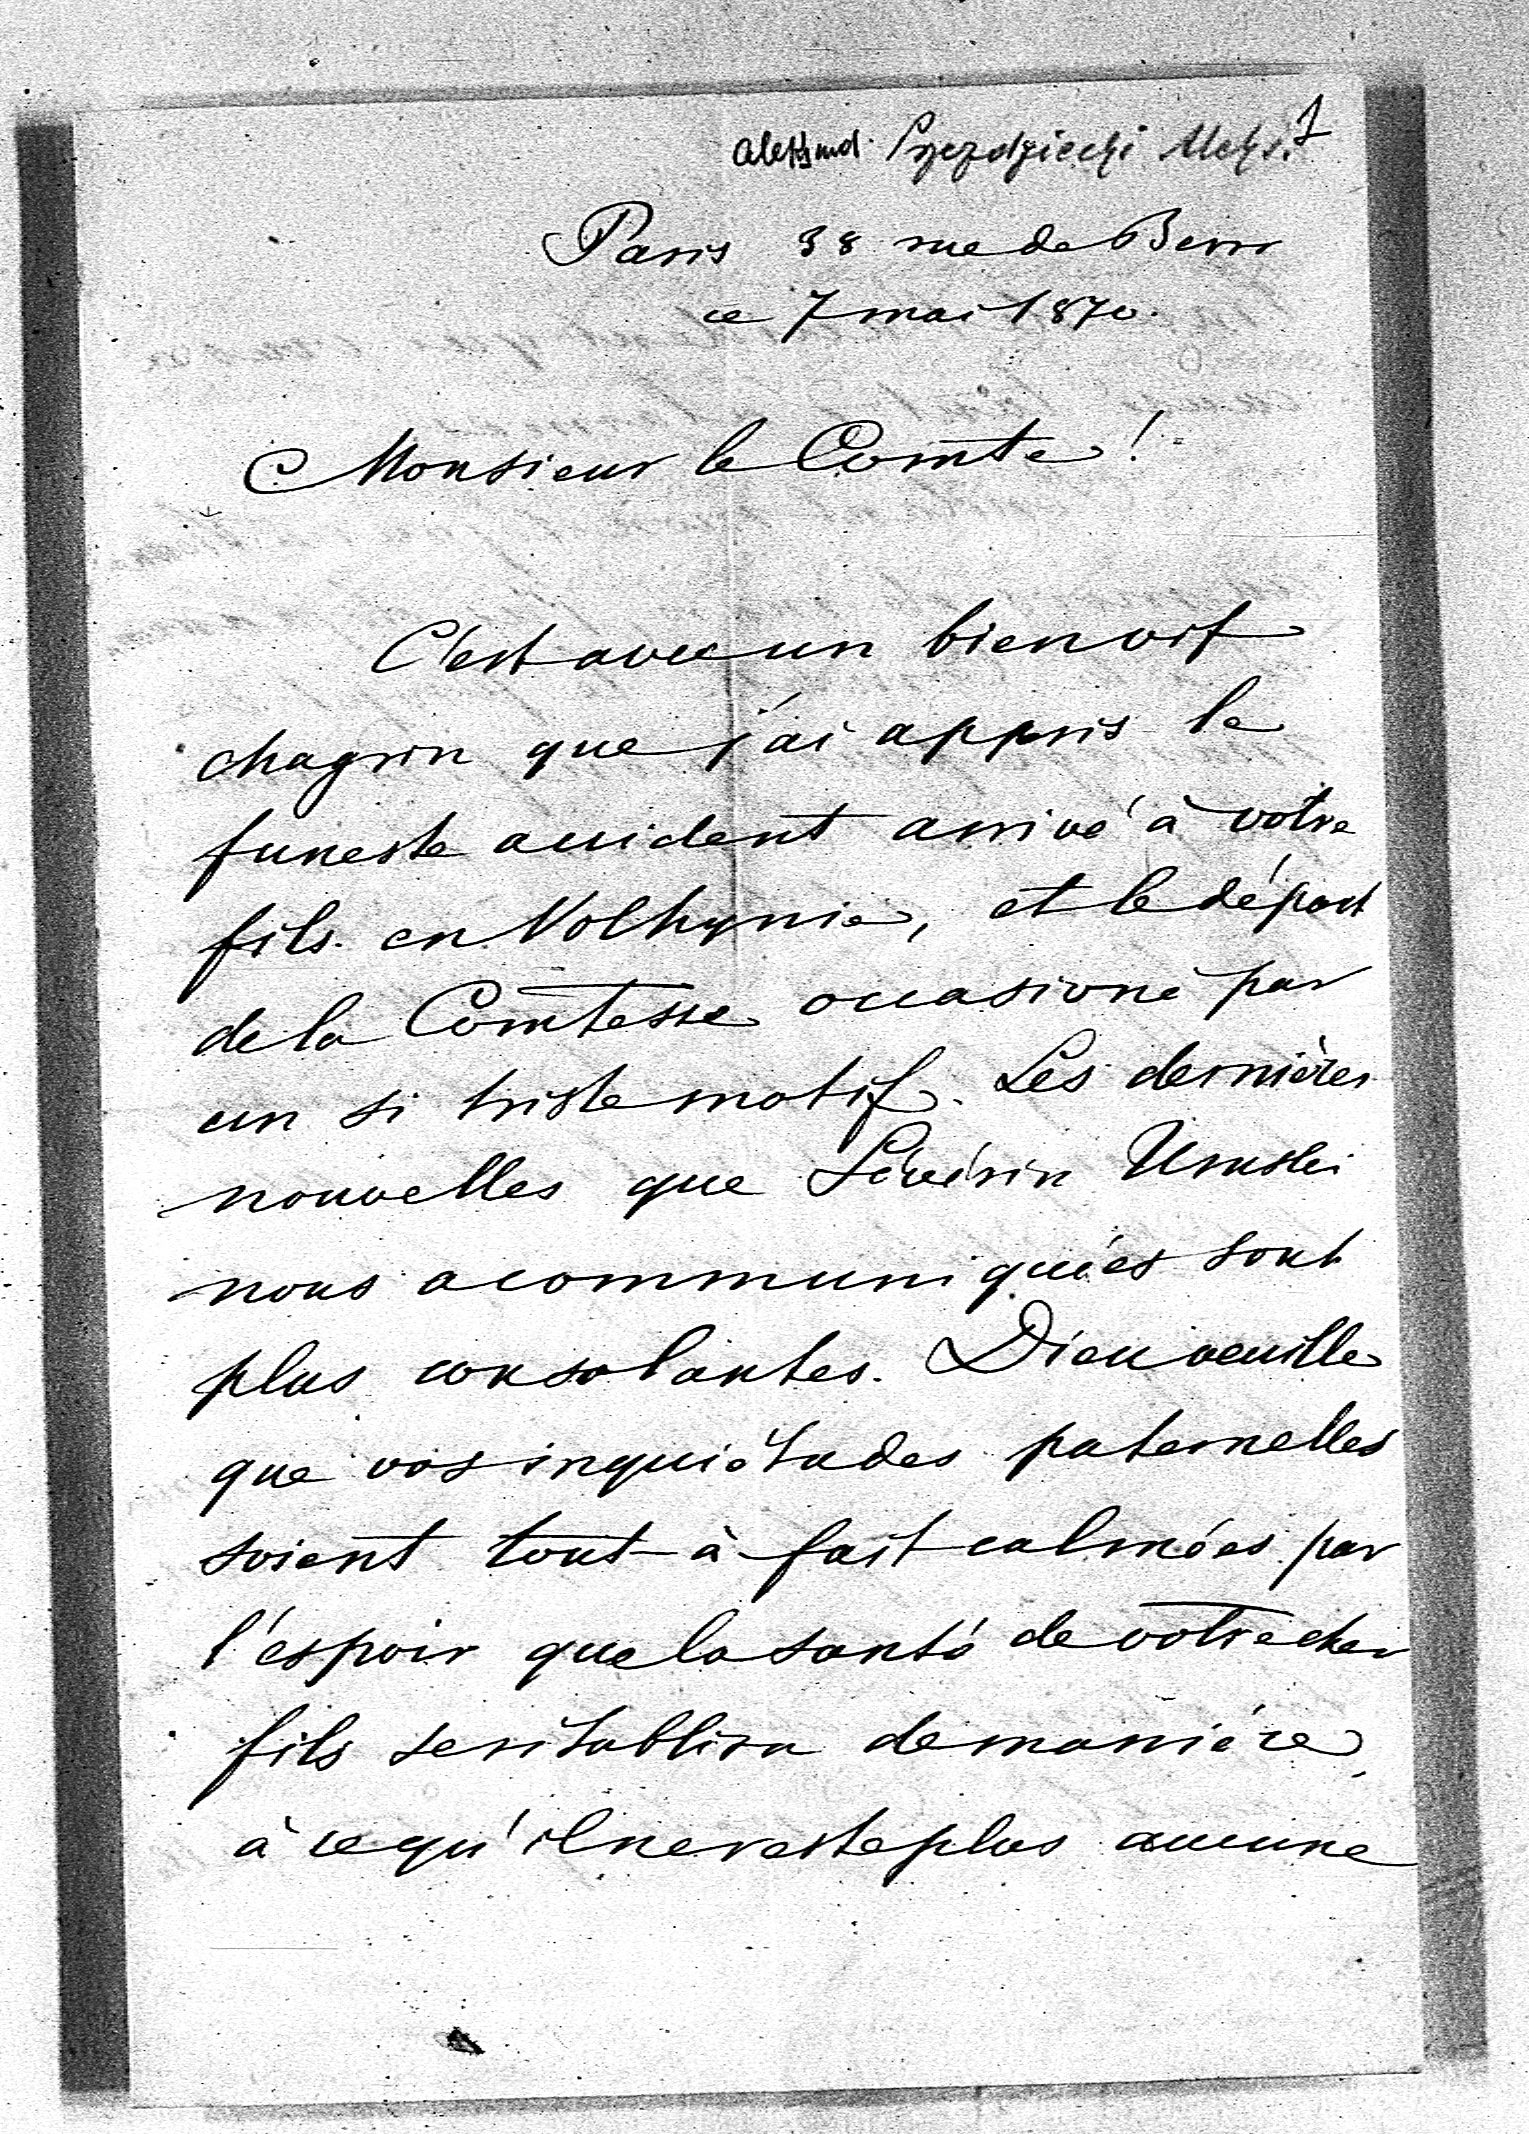 Aleksand. Przezdziecki
1
Paris 38 rue de Berri
ce 7 mai 1870.
Monsieur le Comte!
C'est avec un bien vif
chagrin que j'ai appris le
funeste accident arrivé à votre
fils en Volhynie, et le départ
de la Comtesse occasioné par
un si triste motif. Les dernières
nouvelles que Sévérin Uruski
nous a communiquées sont
plus consolantes. Dieu veuille
que vos inquiétudes paternelles
soient tout-à-fait calmées par
l'espoir que la santé de votre cher
fils se rétablira de manière
à ce qu'il ne reste plus aucune